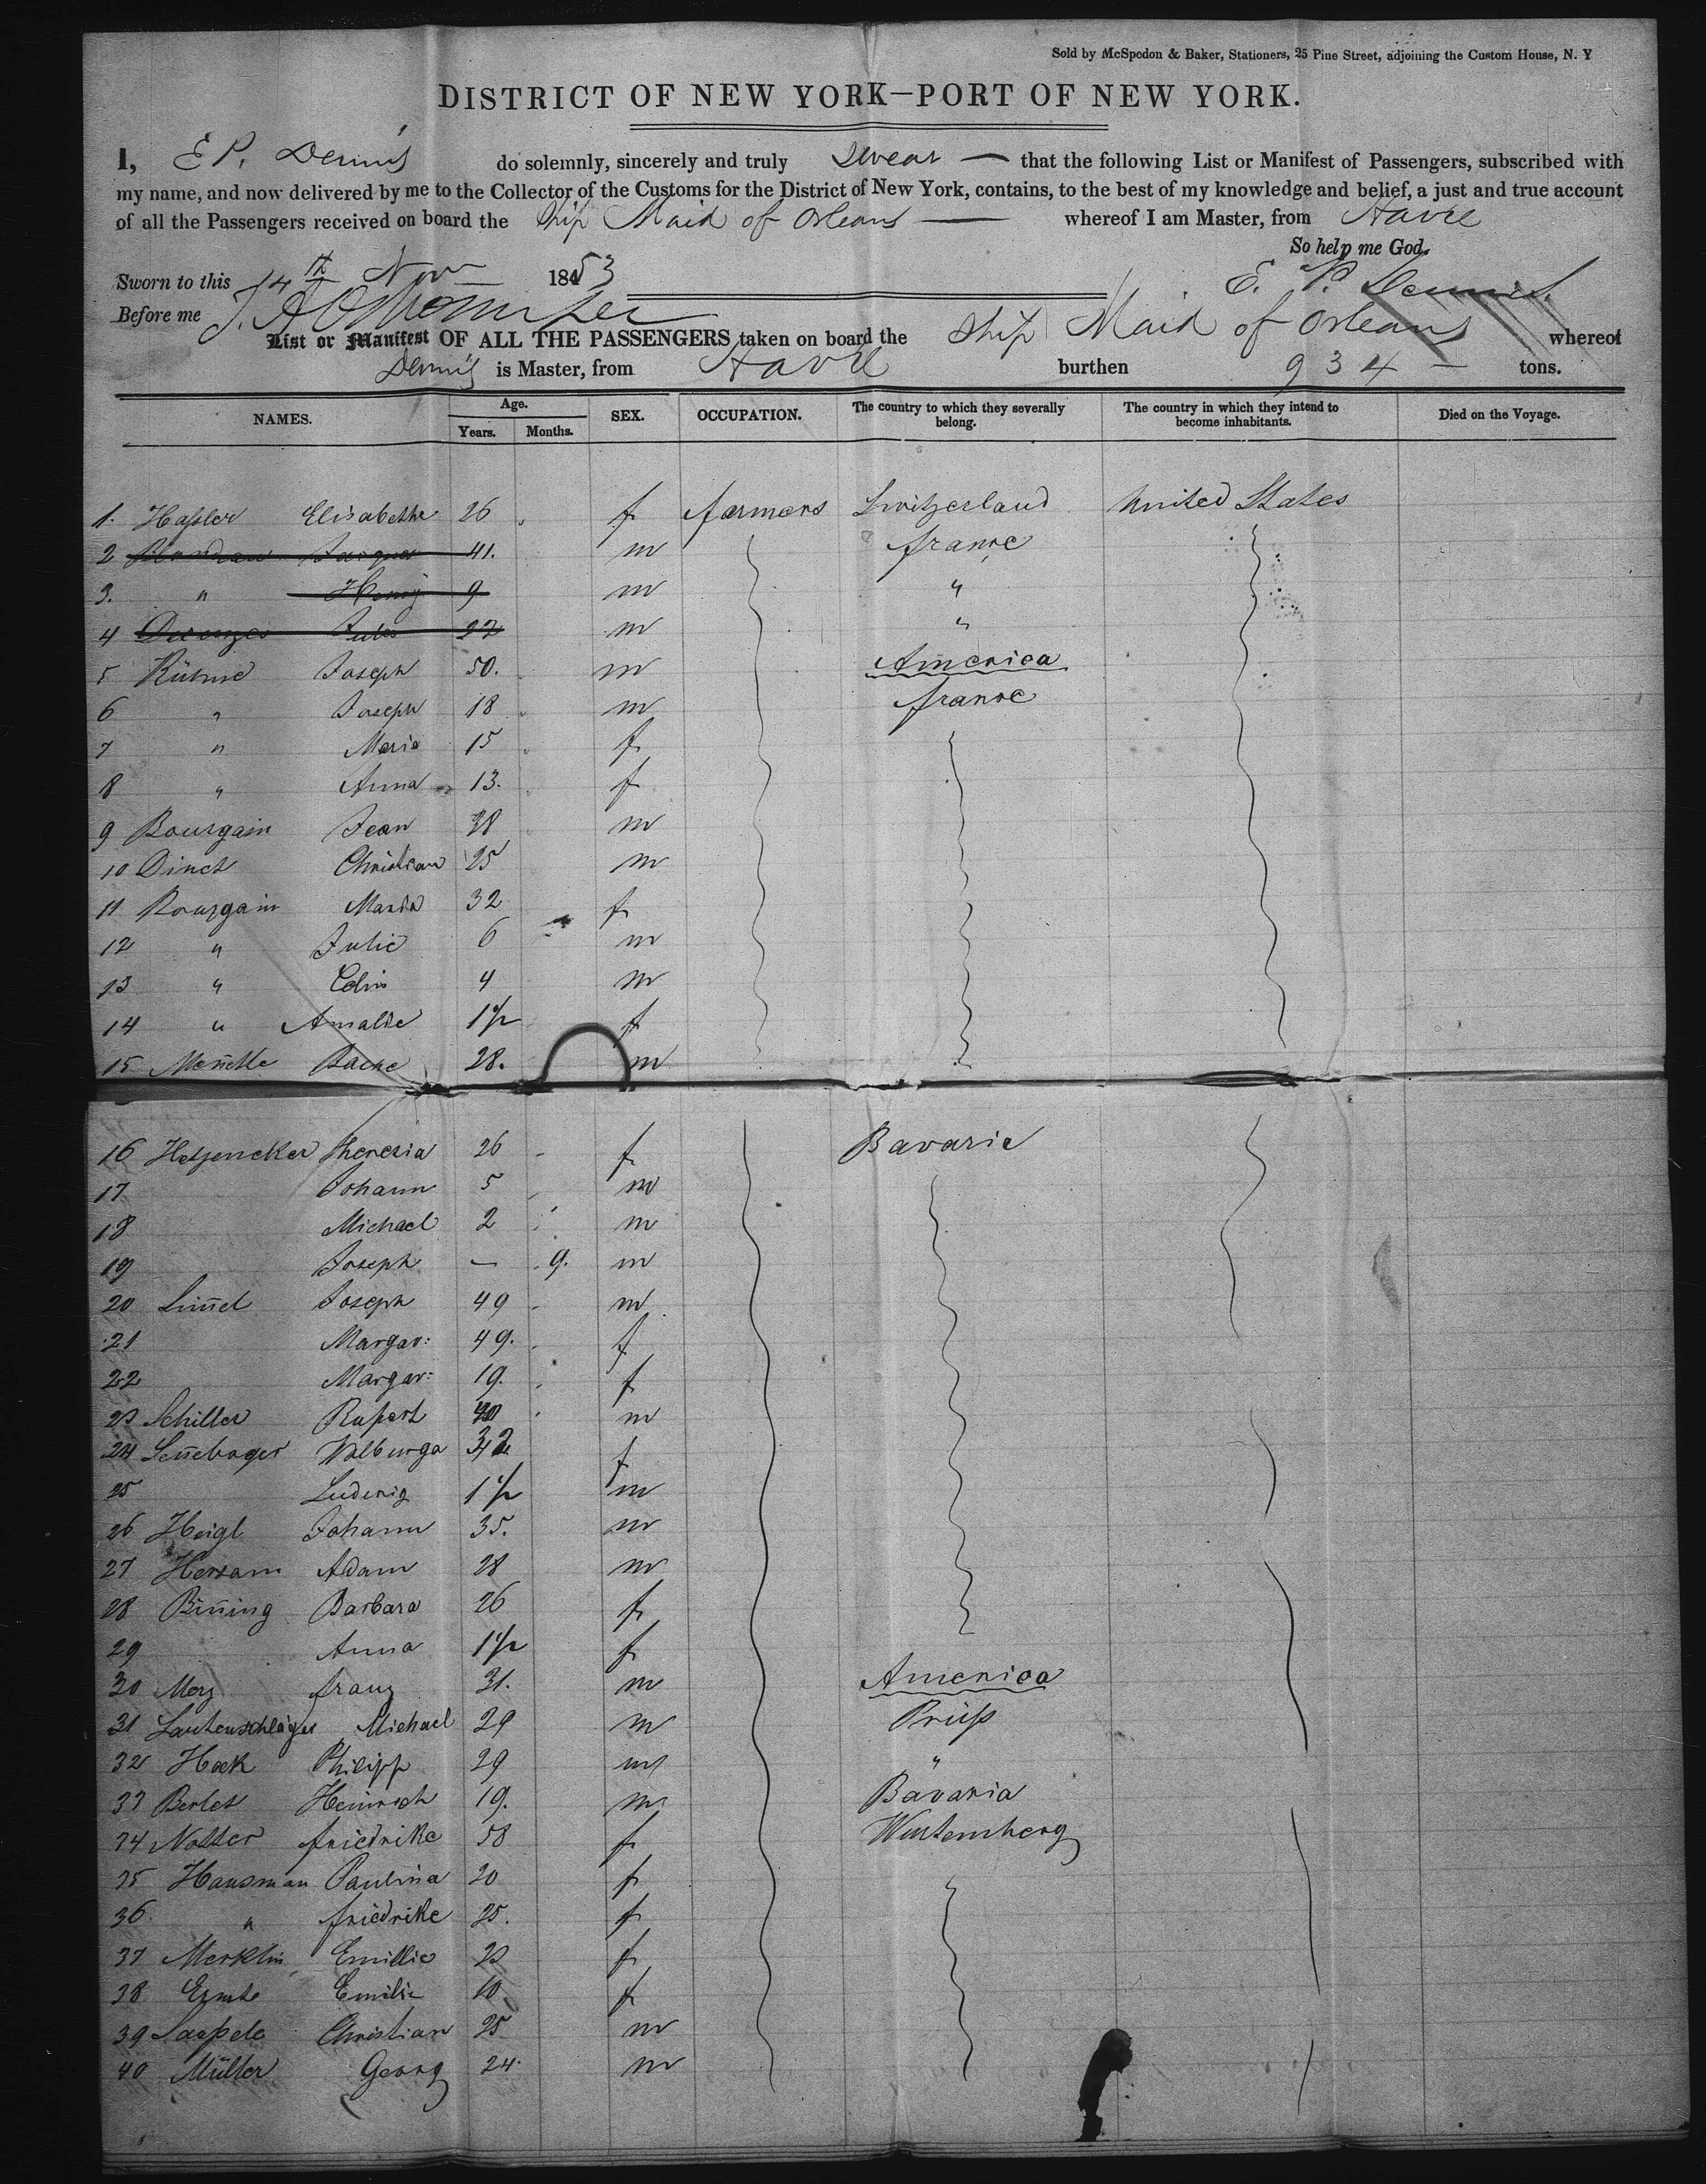 Sold by McSpedon & Baker, Stationers, 25 Pine Street, adjoining the Custom House, N. Y
DISTRICT OF NEW YORK—PORT OF NEW YORK.
I, E P. Dennis do solemnly, sincerely and truly swear — that the following List or Manifest of Passengers, subscribed with
my name, and now delivered by me to the Collector of the Customs for the District of New York, contains, to the best of my knowledge and belief, a just and true account
of all the Passengers received on board the Ship Maid of Orleans — whereof I am Master, from Havre
So help me God.
Sworn to this 14th Nov 1853 E. P. Dennis.
Before me
List or Manifest OF ALL THE PASSENGERS taken on board the Ship Maid of Orleans whereof
Dennis is Master, from Havre burthen 934 — tons.
NAMES. Age. Years. Months. SEX. OCCUPATION. The country to which they severally belong. The country in which they intend to become inhabitants. Died on the Voyage.
1. Hassler Elisabethe 26 f farmers Switzerland United States
2 41. m france
3. " Henry 9 m "
4 Jules 22 m "
5 Joseph 50. m America
6 " Joseph 18 m france
7 " Maria 15 f
8 " Anna 13. f
9 Bourgain Jean 38 m
10 Christian 25 m
11 Bourgain Maria 32 f
12 " Julie 6 m
13 " 4 m
14 " Amalie 1½ f
15 28. m
16 Theresia 26 f Bavarie
17 Johann 5 m
18 Michael 2 m
19 Joseph — 9. m
20 Lim̄el Joseph 49 m
21 Margar: 49. f
22 Margar: 19. f
23 Schiller Rupert m
24 Walburga 32 f
25 Ludwig 1½ m
26 Heigl Johann 35. m
27 Hersam Adam 28 m
28 Bin̄ing Barbara 26 f
29 Anna 1½ f
30 franz 31. m America
31 Lautenschläger Michael 29 m Prüss
32 Hock Philipp 29 m "
33 Berlet Heinrich 19. m Bavaria
34 Notter friedrike 58 f Wurtemberg
35 Hausman Paulina 20 f
36. " friedrike 25. f
37 Merklin Emillie 23 f
38 Emilie 10 f
39 Christian 25 m
40 Müller Georg 24. m